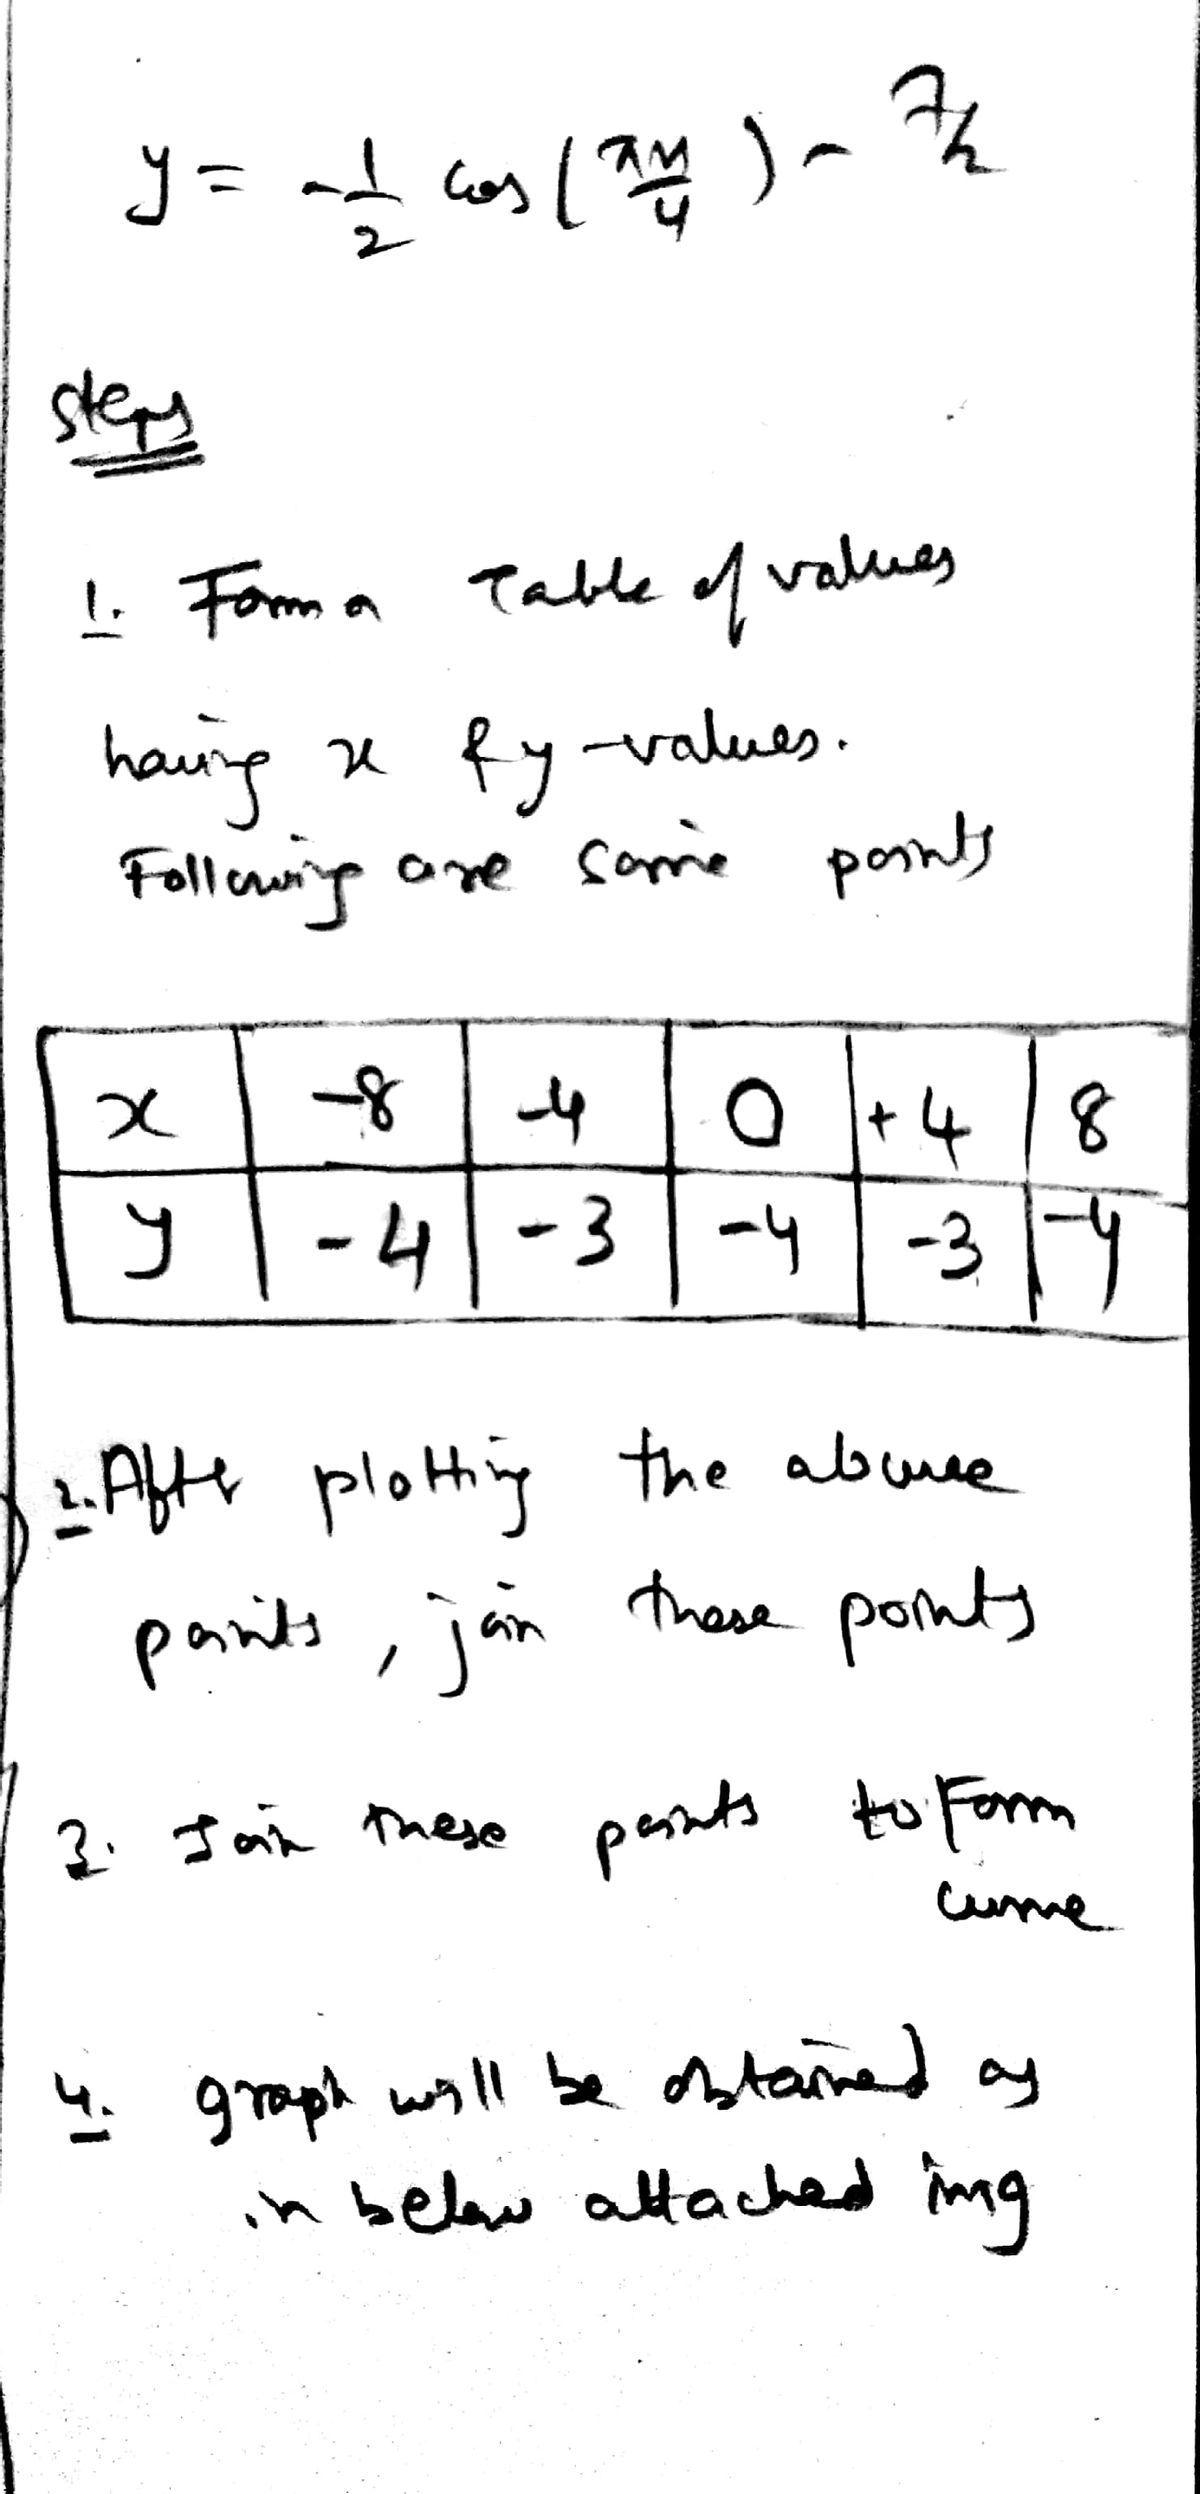 y = -1/2 cos (πx/4) - 7/2
steps
1. Form a Table of values
having x & y-values.
Following are some points
x -8 -4 0 +4 8
y -4 -3 -4 -3 -4
2. After plotting the above
points, join these points
3. Join these points to form
curve
4. graph will be obtained as
in below attached img